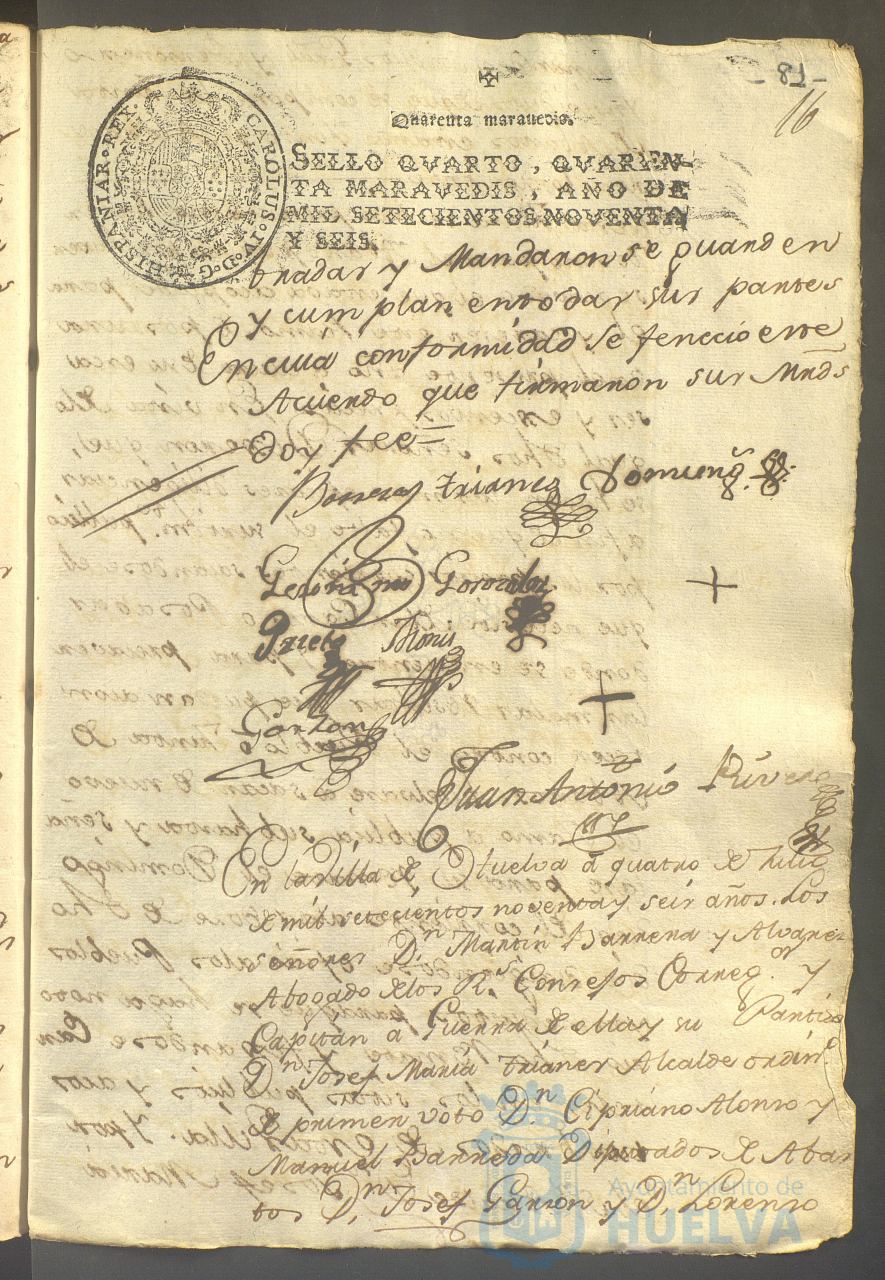 - 81 -
16
Quarenta maravedis.
SELLO QVARTO, QVAREN-
TA MARAVEDIS, AÑO DE
MIL SETECIENTOS NOVENTA
Y SEIS.
CAROLUS·IV·D·G· HISPANIAR·REX·
y Mandaron se guarden
y cumplan en todas sus partes
En cuia conformidad se feneció este
Acuerdo que firmaron sus Mrds
Doy fee =
Barreda Trianes
Geronimo Gonzales
Prieto
Garzon
Juan Antonio Rivera
En la Villa de Huelva á quatro de Julio
de mil setecientos noventa y seis años. Los
señores Dn. Martin Barrera y Alvarez
Abogado de los Rs. Consejos Correg.or y
Capitán á Guerra de ella y su Partido
Dn. Josef Maria Trianes Alcalde ordin.o
de primer voto Dn. Cipriano Alonso y
Manuel Barreda Diputados de Abas
tos Dn. Josef Garzon y Dn. Lorenzo
Ayuntamiento de
HUELVA